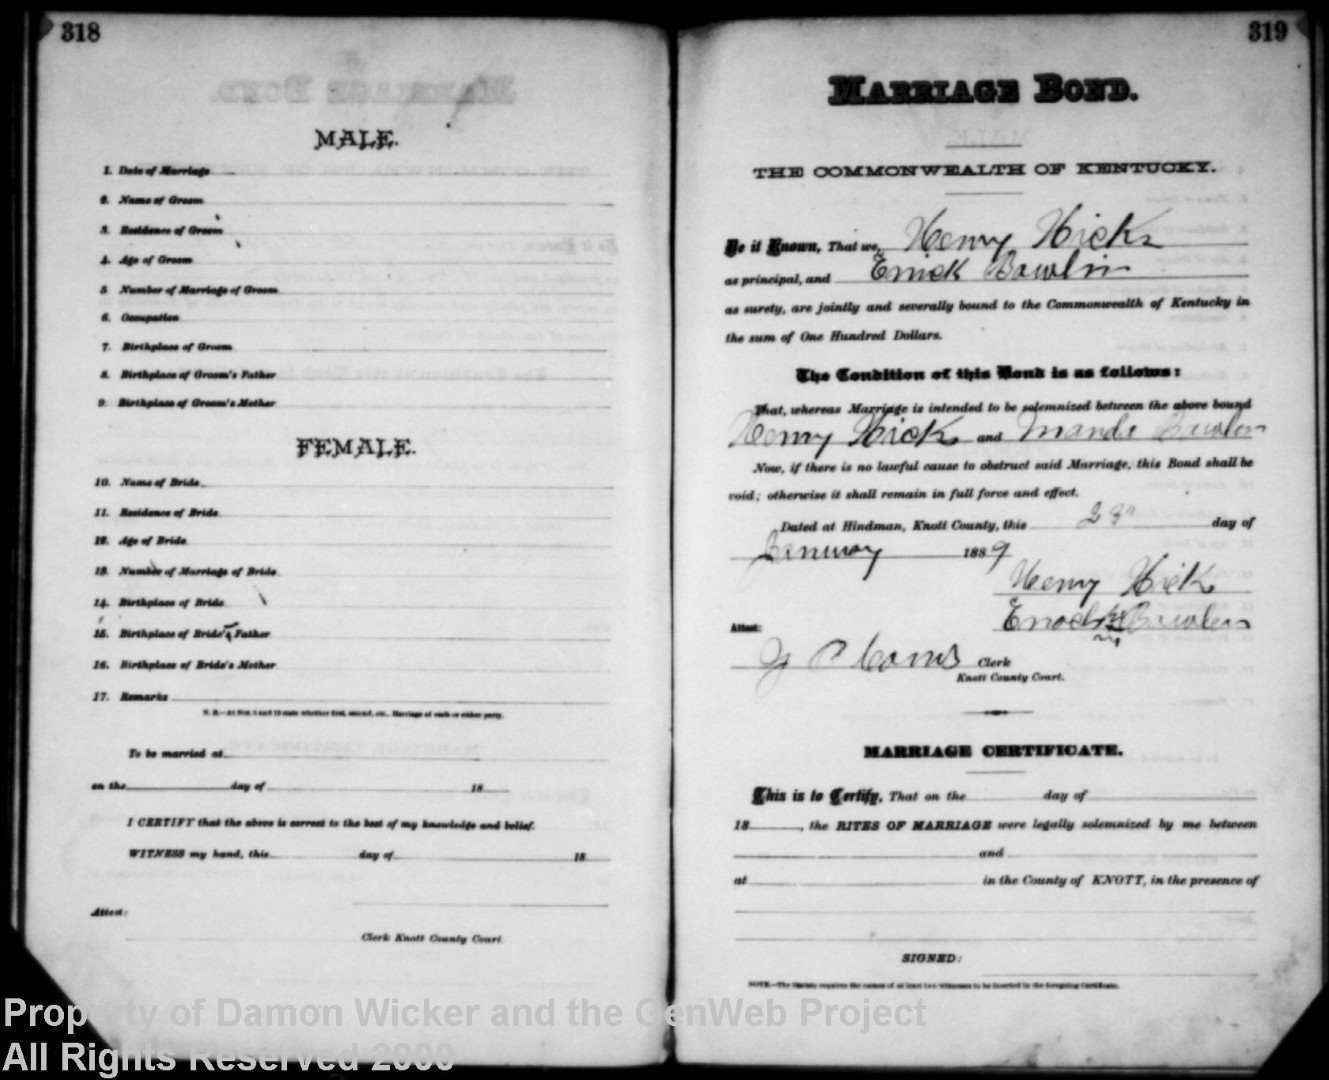 318
MALE.
1. Date of Marriage
2. Name of Groom
3. Residence of Groom
4. Age of Groom
5 Number of Marriage of Groom
6. Occupation
7. Birthplace of Groom
8. Birthplace of Groom's Father
9. Birthplace of Groom's Mother
FEMALE.
10. Name of Bride
11. Residence of Bride
12. Age of Bride
13. Number of Marriage of Bride
14. Birthplace of Bride
15. Birthplace of Bride's Father
16. Birthplace of Bride's Mother
17. Remarks
N. B.—At Nos. 5 and 13 state whether first, second, etc., Marriage of each or either party.
To be married at
on the day of 18
I CERTIFY that the above is correct to the best of my knowledge and belief.
WITNESS my hand, this day of 18
Attest:
Clerk Knott County Court.
319
MARRIAGE BOND.
THE COMMONWEALTH OF KENTUCKY.
Be it Known, That we, Henry Hicks
as principal, and Enick Bawlin
as surety, are jointly and severally bound to the Commonwealth of Kentucky in
the sum of One Hundred Dollars.
The Condition of this Bond is as follows:
That, whereas Marriage is intended to be solemnized between the above bound
Henry Hicks and Manda Bawlen
Now, if there is no lawful cause to obstruct said Marriage, this Bond shall be
void; otherwise it shall remain in full force and effect.
Dated at Hindman, Knott County, this 28" day of
January 1889
Henry Hick
Enoch Bawlen
Attest:
Clerk
Knott County Court.
MARRIAGE CERTIFICATE.
This is to Certify, That on the day of
18 , the RITES OF MARRIAGE were legally solemnized by me between
and
at in the County of KNOTT, in the presence of
SIGNED:
NOTE.—The Statute requires the names of at least two witnesses to be inserted in the foregoing Certificate.
Property of Damon Wicker and the GenWeb Project
All Rights Reserved 2000